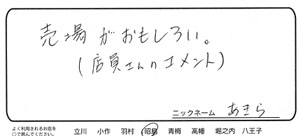 売場がおもしろい。
(店員さんのコメント)
ニックネーム あきら
よく利用されるお店を○で囲んでください。 立川 小作 羽村 昭島 青梅 高幡 堀之内 八王子